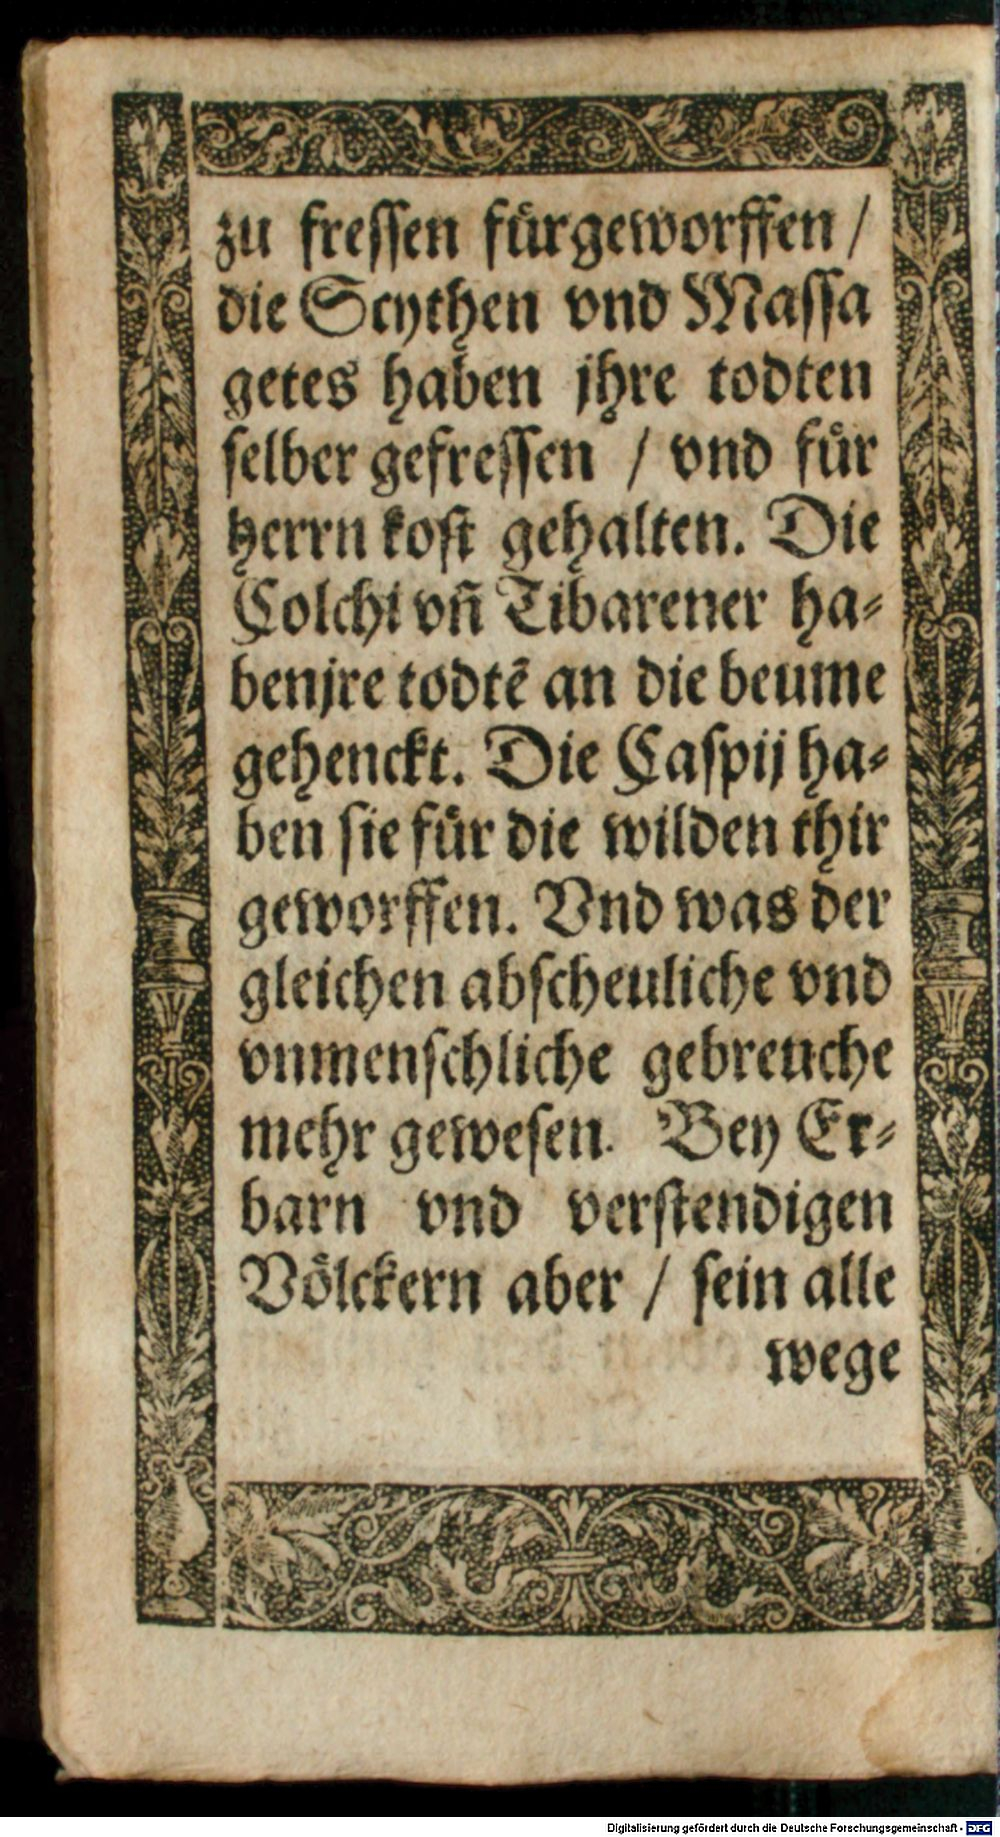 zu fressen fürgeworffen /
die Scythen vnd Massa
getes haben jhre todten
selber gefressen / vnd für
herrn kost gehalten. Die
Colchi vñ Tibarener ha⸗
benjre todtẽ an die beume
gehenckt. Die Caspij ha⸗
ben sie für die wilden thir
geworffen. Vnd was der
gleichen abscheuliche vnd
vnmenschliche gebreuche
mehr gewesen. Bey Er⸗
barn vnd verstendigen
Völckern aber / sein alle
wege
Digitalisierung gefördert durch die Deutsche Forschungsgemeinschaft - DFG